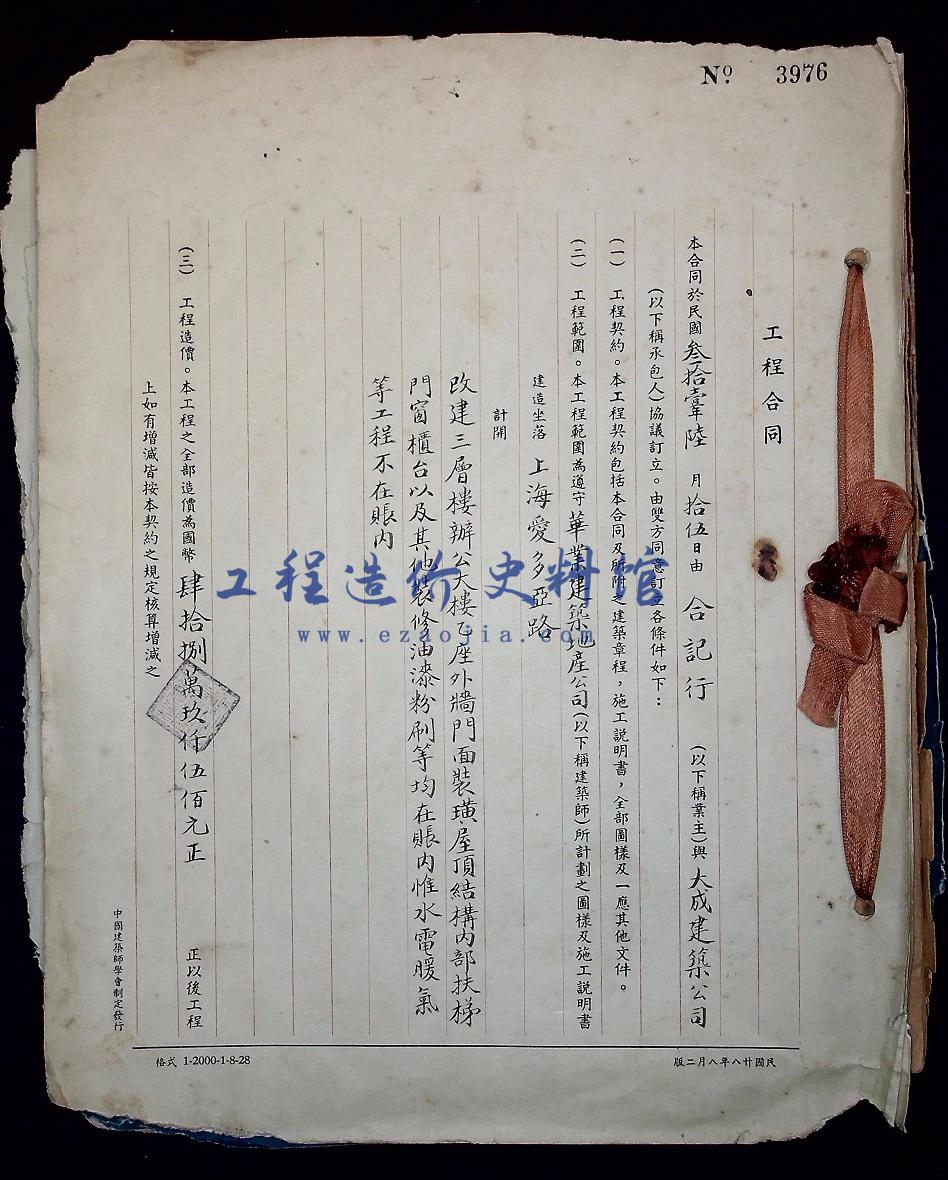 Nº 3976
工程合同
本合同於民國叁拾壹年陸月拾伍日由 合記行 (以下稱業主)與 大成建築公司
(以下稱承包人)協議訂立。由雙方同意訂立各條件如下：
(一) 工程契約。本工程契約包括本合同及所附之建築章程，施工說明書，全部圖樣及一應其他文件。
(二) 工程範圍。本工程範圍為遵守華業建築地產公司(以下稱建築師)所計劃之圖樣及施工說明書
建造坐落 上海愛多亞路
計開
改建三層樓辦公大樓乙座外牆門面裝璜屋頂結構內部扶梯
門窗櫃台以及其他裝修油漆粉刷等均在賬內惟水電暖氣
等工程不在賬內
(三) 工程造價。本工程之全部造價為國幣 肆拾捌萬玖仟伍佰元正 正以後工程
上如有增減皆按本契約之規定核算增減之
中國建築師學會制定發行
格式 1-2000-1-8-28
民國廿八年八月二版
工程造价史料馆
www.ezaojia.com